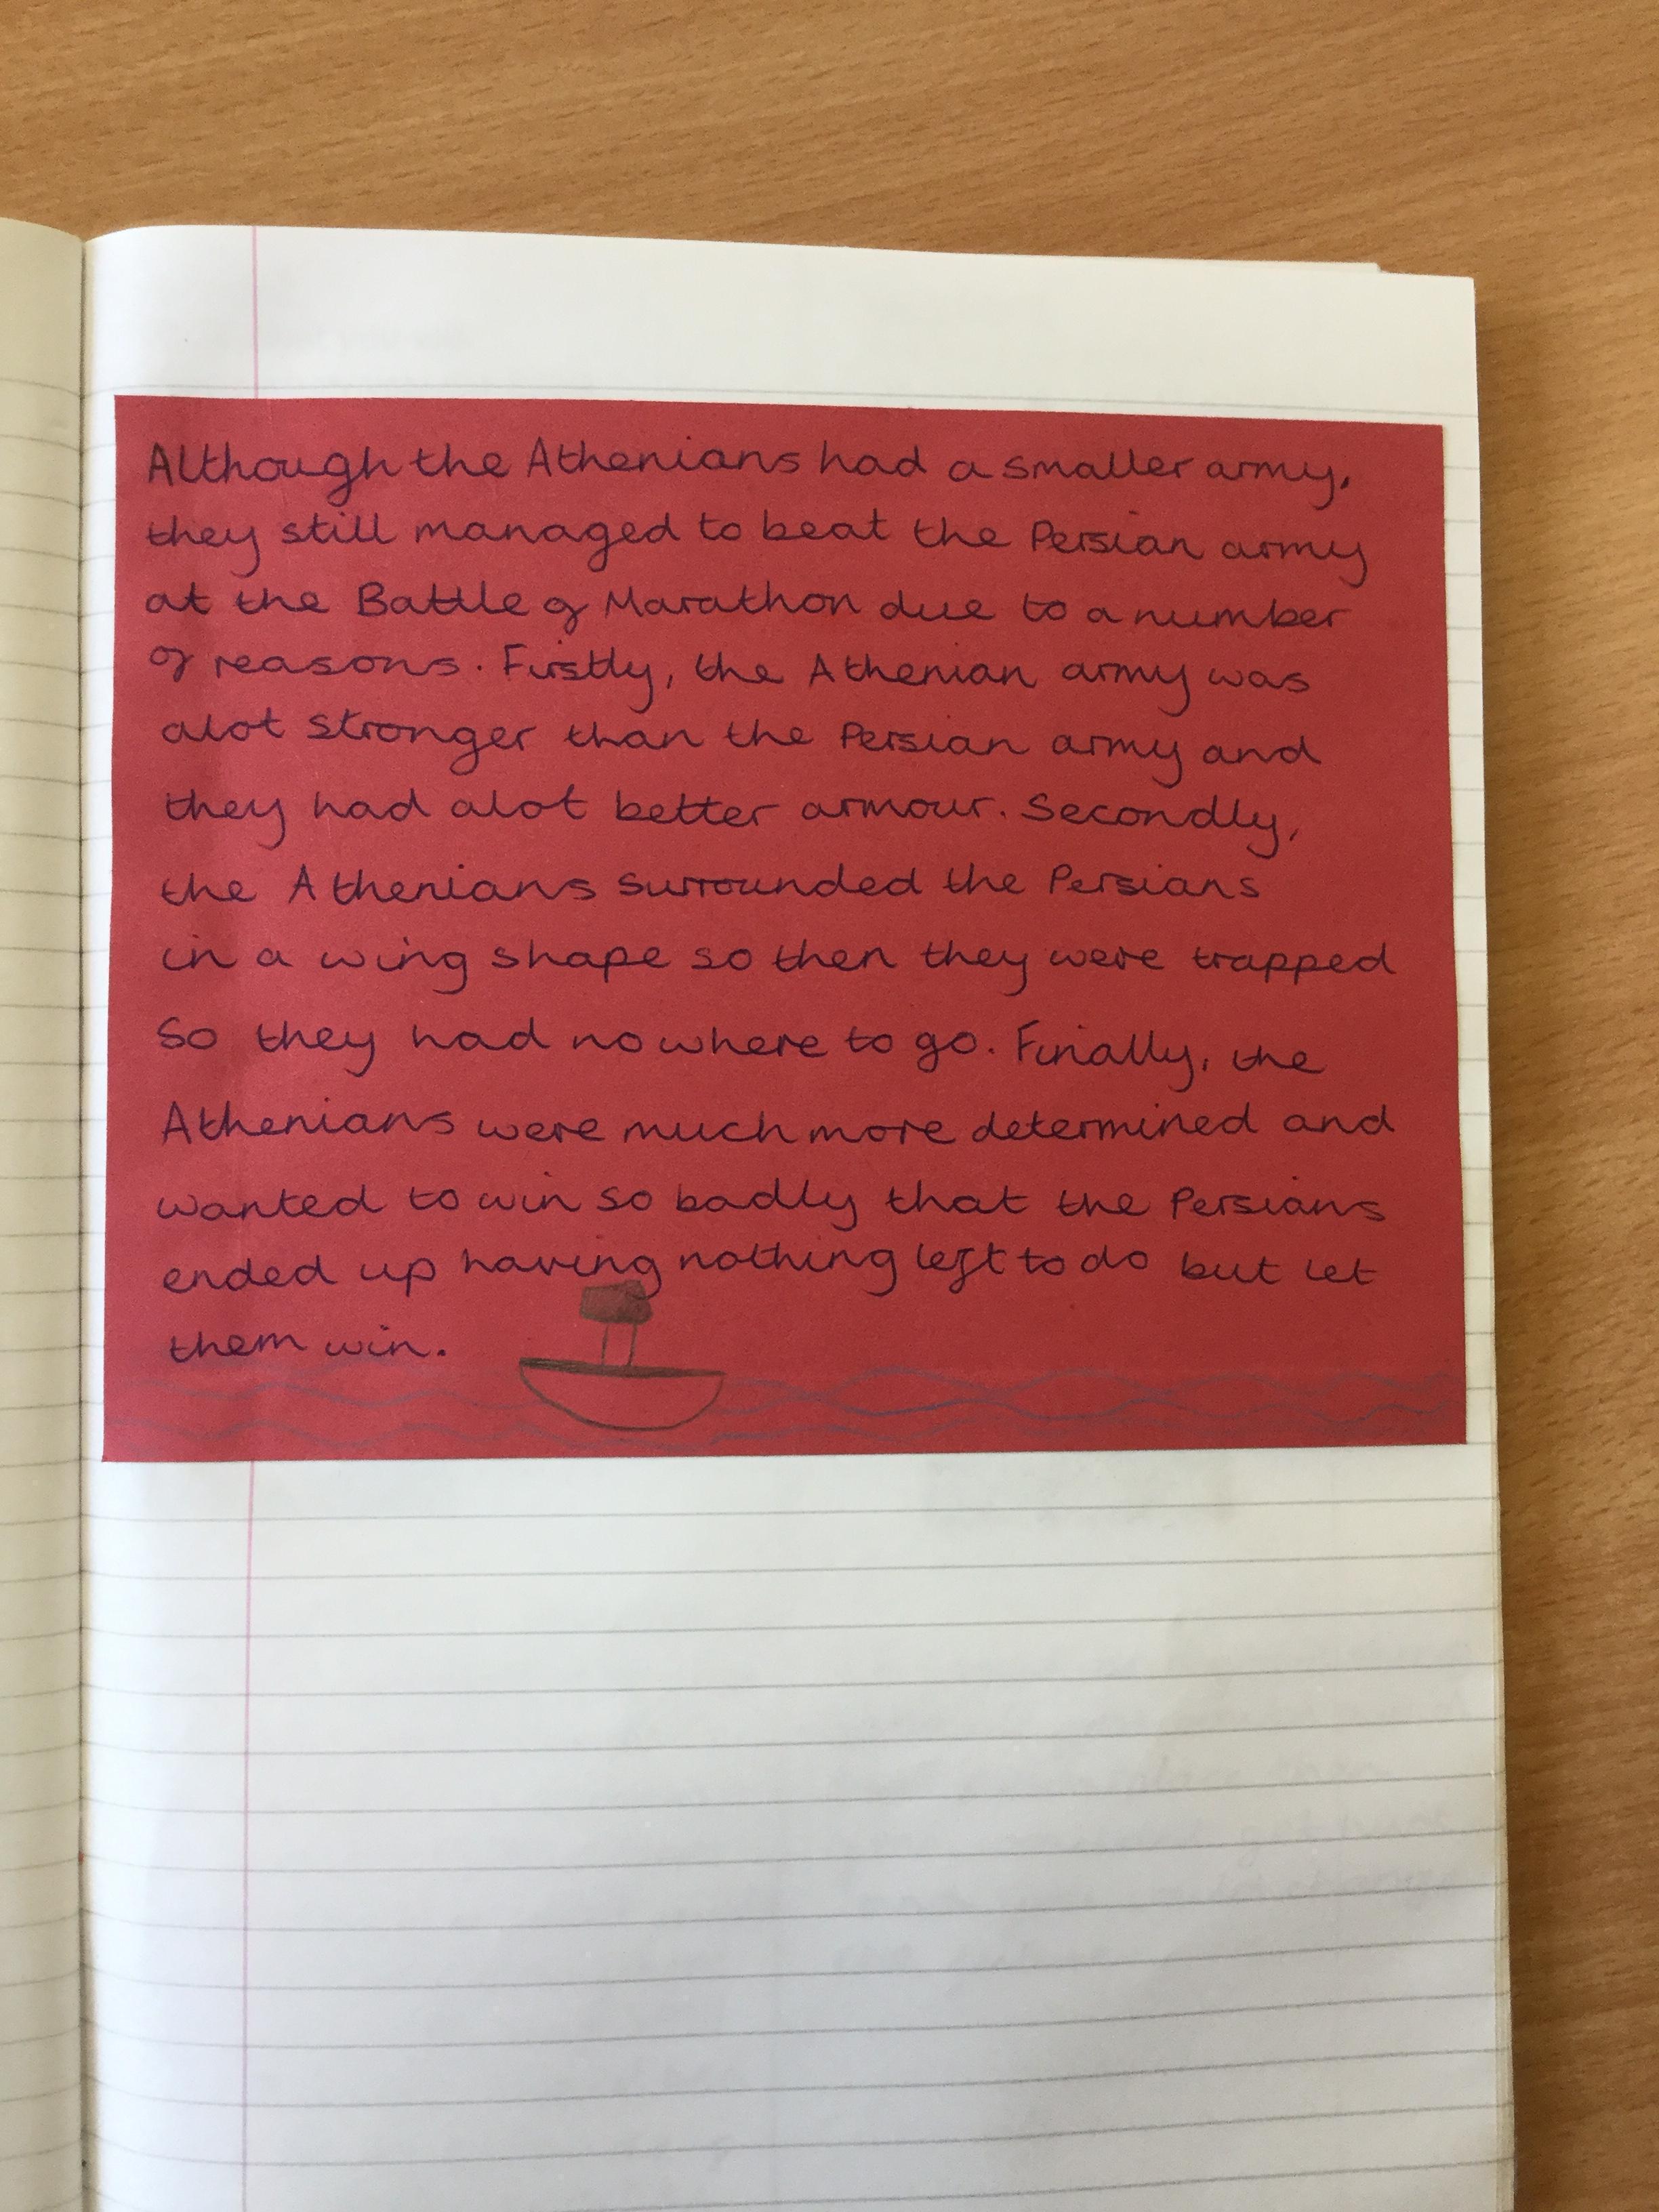 Although the Athenians had a smaller army,
they still managed to beat the Persian army
at the Battle of Marathon due to a number
of reasons. Firstly, the Athenian army was
alot stronger than the Persian army and
they had alot better armour. Secondly,
the Athenians surrounded the Persians
in a wing shape so then they were trapped
so they had no where to go. Finally, the
Athenians were much more determined and
wanted to win so badly that the Persians
ended up having nothing left to do but let
them win.